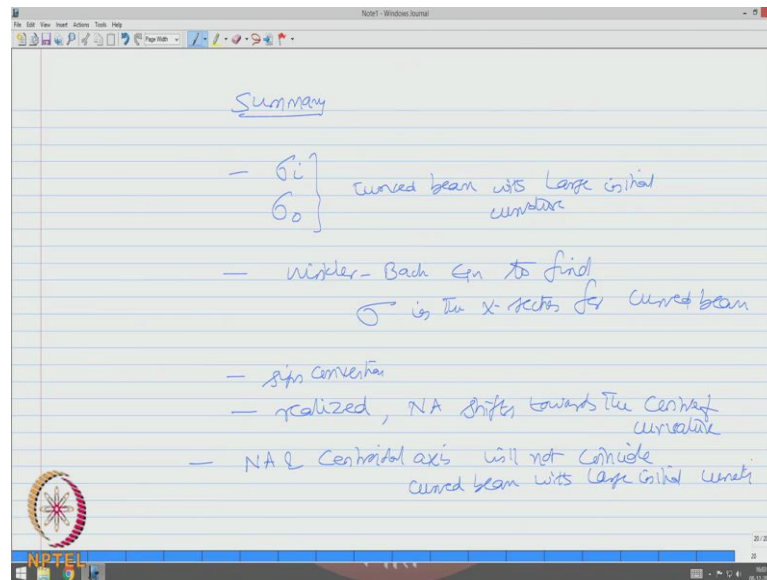 Note1 - Windows Journal
File Edit View Insert Actions Tools Help
Page Width
Summary
- σi
σo } curved beam with large initial
curvature
- Winkler-Bach Eqn to find
σ in the x-section for curved beam
- sign convention
- realized, NA shifts towards the center of
curvature
- NA & Centroidal axis will not coincide
curved beam with large initial
NPTEL
20